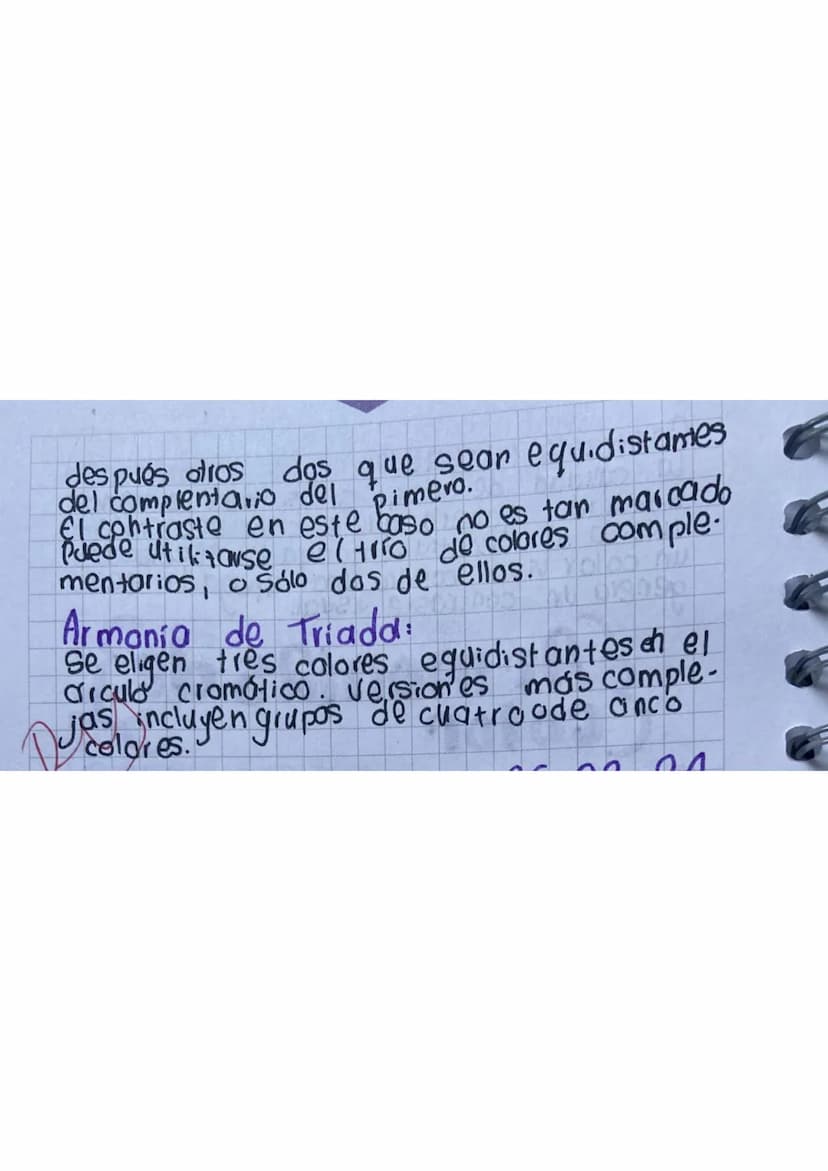 después otros dos que sean equidistantes
del complentario del pimero.
El contraste en este caso no es tan marcado
Puede utilizarse el trío de colores comple-
mentarios, o sólo dos de ellos.
Armonía de Triada:
Se eligen tres colores equidistantes en el
circulo cromático. versiones más comple-
jas incluyen grupos de cuatro o de cinco
colores.